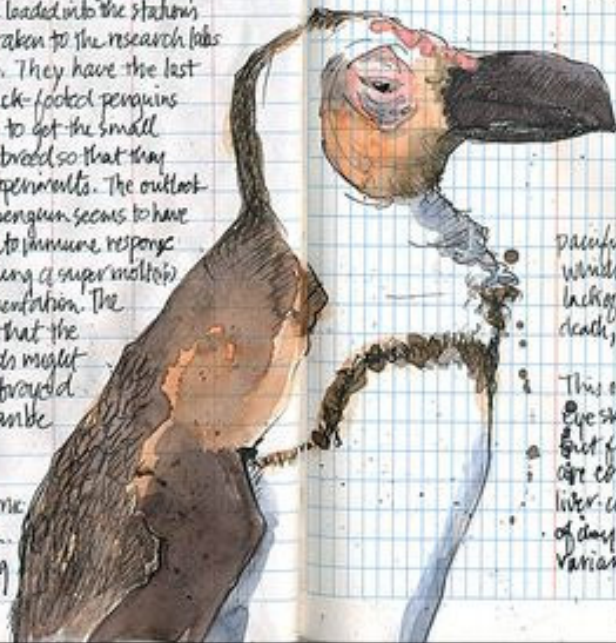 loaded into the stations
taken to the research labs
. They have the last
ck-footed penguins
to get the small
breed so that they
periments. The outlook
penguin seems to have
to immune response
ing a super molt
mentation. The
that the
ds might
troyed
an be
pacif
wind
lack
death,
This
eye s
but f
are e
liver.
of day
varian